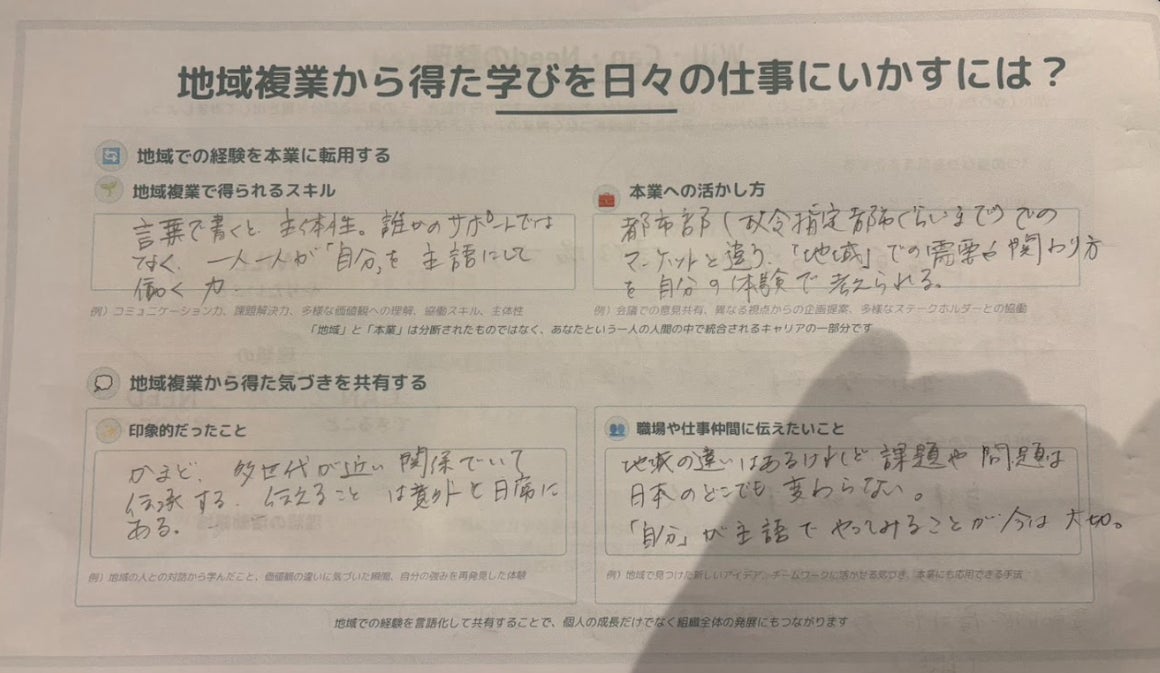 地域複業から得た学びを日々の仕事にいかすには？
地域での経験を本業に転用する
地域複業で得られるスキル
言葉で書くと、主体性。誰かのサポートでは
なく、一人一人が「自分」を主語にして
働く力
例）コミュニケーション力、課題解決力、多様な価値観への理解、協働スキル、主体性
本業への活かし方
都市部（政令指定都市ぐらいまで）での
マーケットと違う、「地域」での需要や関わり方
を自分の体験で考えられる。
例）会議での意見共有、異なる視点からの企画提案、多様なステークホルダーとの協働
「地域」と「本業」は分断されたものではなく、あなたという一人の人間の中で統合されるキャリアの一部分です
地域複業から得た気づきを共有する
印象的だったこと
かまど、多世代が近い関係でいて
伝承する、伝えること は意外と日常に
ある。
例）地域の人との対話から学んだこと、価値観の違いに気づいた瞬間、自分の強みを再発見した体験
職場や仕事仲間に伝えたいこと
地域の違いはあるけれど 課題や問題は
日本のどこでも変わらない。
「自分」が主語でやってみることが今は大切。
例）地域で見つけた新しいアイデア、チームワークに活かせる気づき、本業にも応用できる手法
地域での経験を言語化して共有することで、個人の成長だけでなく組織全体の発展にもつながります